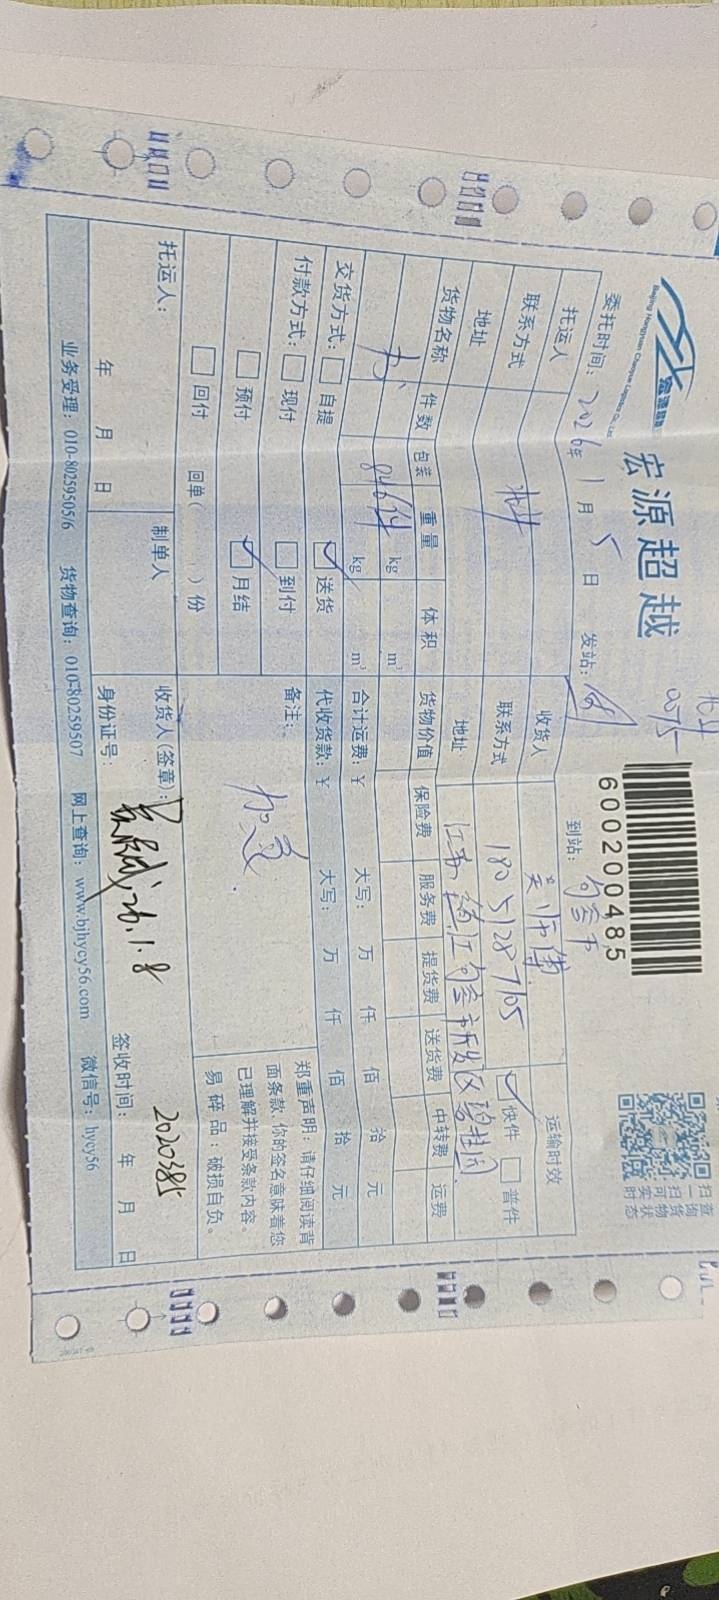 宏源超越
Beijing Hongyuan Chaoyue Logistics Co., Ltd.
600200485
扫一扫
查询货物
可实时状态
委托时间：2026年1月5日 发站： 到站：句容市
托运人 收货人 吴师傅 运输时效
联系方式 联系方式 18051287105 快件 普件
地址 地址 江苏镇江句容市开发区碧桂园
货物名称 件数 包装 重量 体积 货物价值 保险费 服务费 提货费 送货费 中转费 运费
846件 kg m³
kg m³ 合计运费：¥ 大写： 万 仟 佰 拾 元
交货方式： 自提 送货 代收货款：¥ 大写： 万 仟 佰 拾 元
付款方式： 现付 到付 备注： 加急
预付 月结
回付 回单（ ）份
郑重声明：请仔细阅读背
面条款，你的签名意味着您
已理解并接受条款内容。
易碎品：破损自负。
托运人： 制单人 收货人（签章）： 26.1.8 2020385
年 月 日 身份证号： 签收时间： 年 月 日
业务受理：010-80259505/6 货物查询：010-80259507 网上查询：www.bjhycy56.com 微信号：hycy56